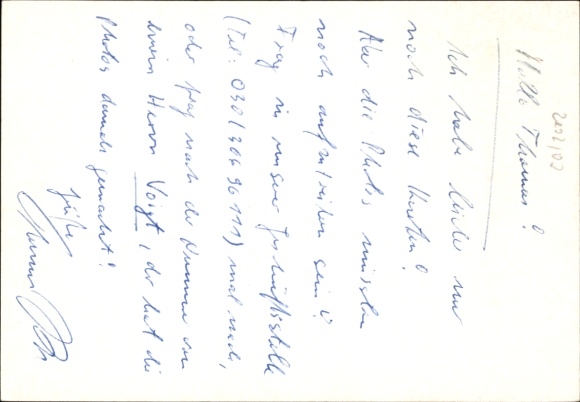 Hallo Thomas!
Ich habe leider nur
noch diese Karten!
Aber die Photos müssten
noch aufzutreiben sein!
Frag in unserer Geschäftsstelle
(Tel: 030/ 304 96 111) mal nach,
oder frag nach der Nummer von
einem Herrn Voigt, der hat die
Photos damals gemacht!
Grüße